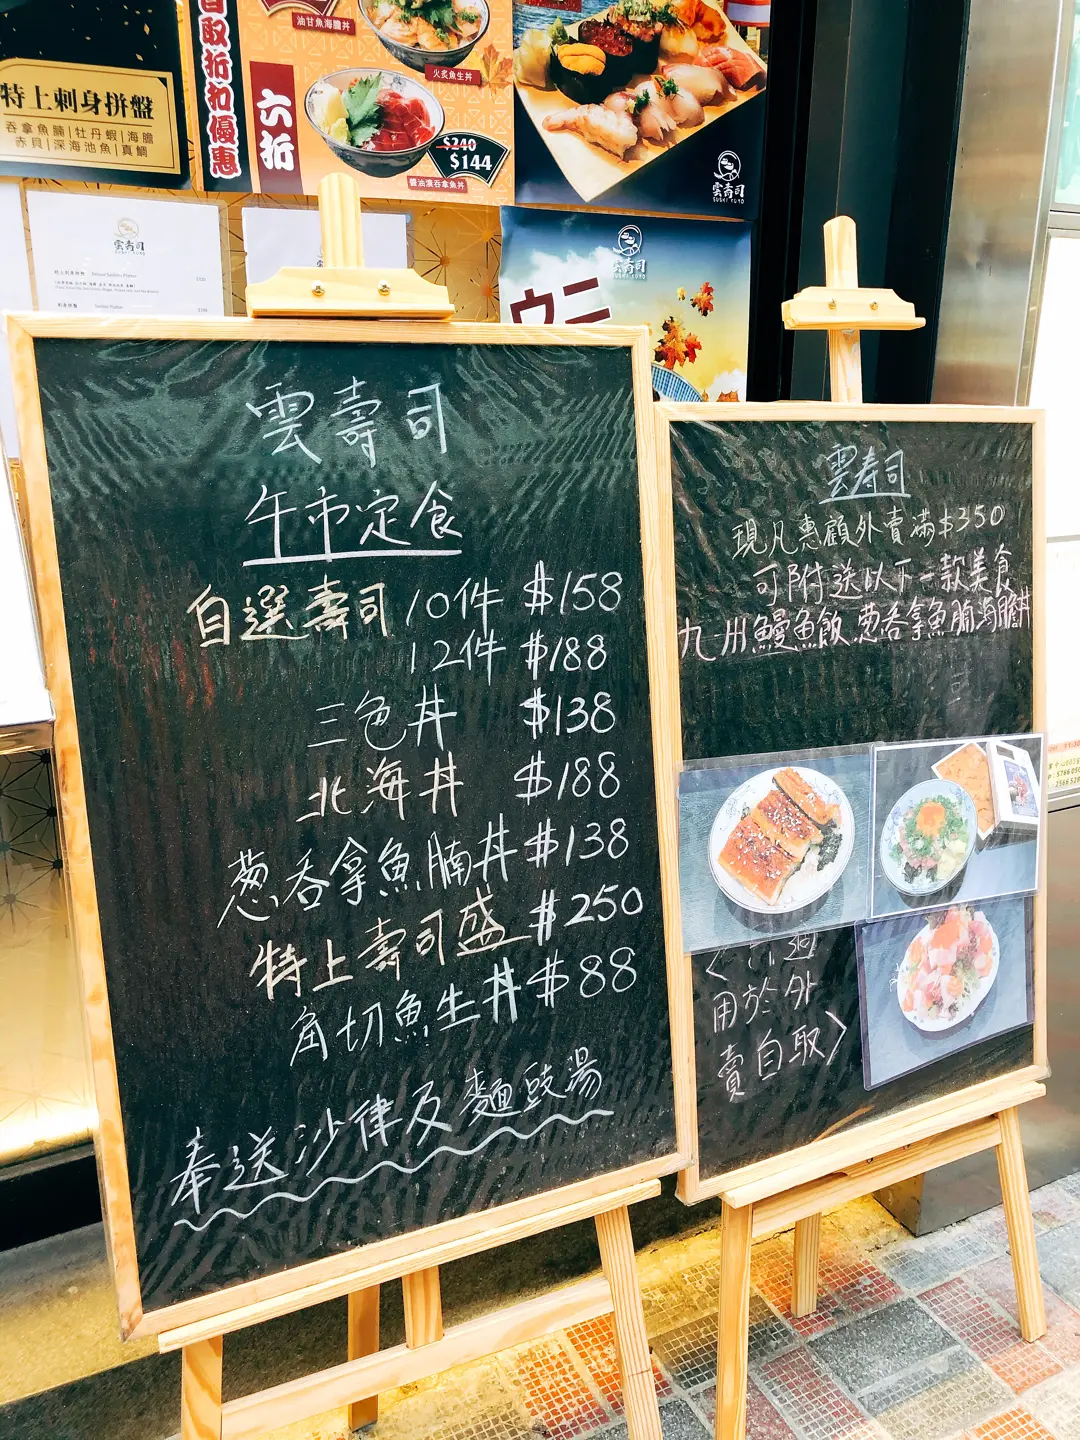 特上刺身拼盤
吞拿魚腩|牡丹蝦|海膽
赤貝|深海池魚|真鯛
自取折扣優惠
六折
油甘魚海膽丼
火炙魚生丼
$240
$144
醬油漬吞拿魚丼
雲壽司
SUSHI KUMO
雲壽司
SUSHI KUMO
雲壽司
ウニ
雲壽司
午市定食
自選壽司 10件 $158
12件 $188
三色丼 $138
北海丼 $188
葱吞拿魚腩丼 $138
特上壽司盛 $250
角切魚生丼 $88
奉送沙律及麵豉湯
雲寿司
現凡惠顧外賣滿$350
可附送以下一款美食
九州鰻魚飯，葱吞拿魚腩海膽丼
用於外
賣自取〉